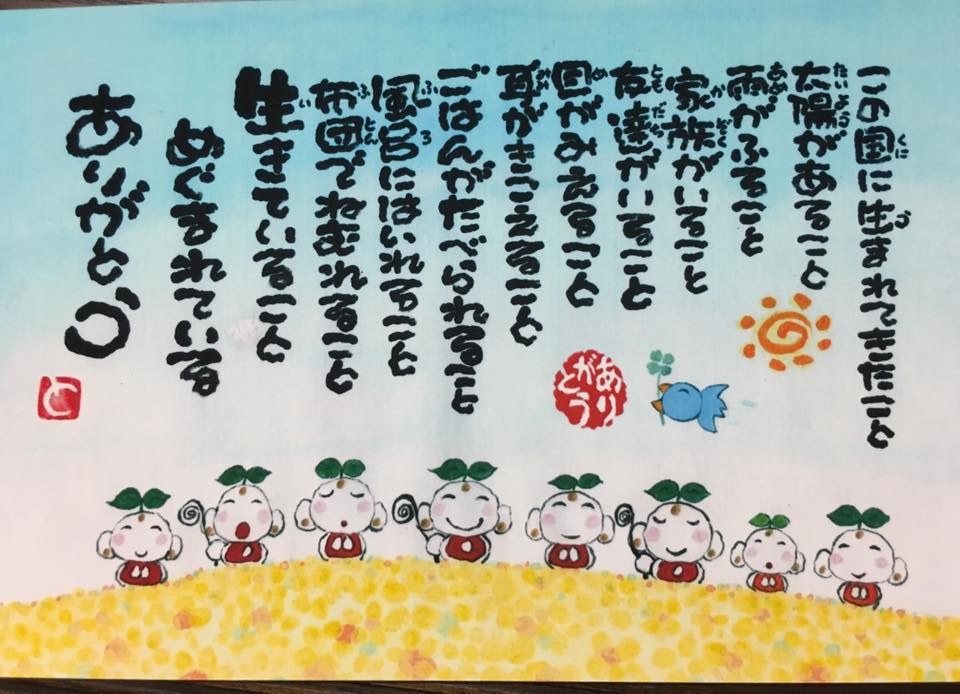 この国に生まれてきたこと
太陽があること
雨がふること
家族がいること
友達がいること
目がみえること
耳がきこえること
ごはんがたべられること
風呂にはいれること
布団でねむれること
生きていること
めぐまれている
ありがとう
ありがとう